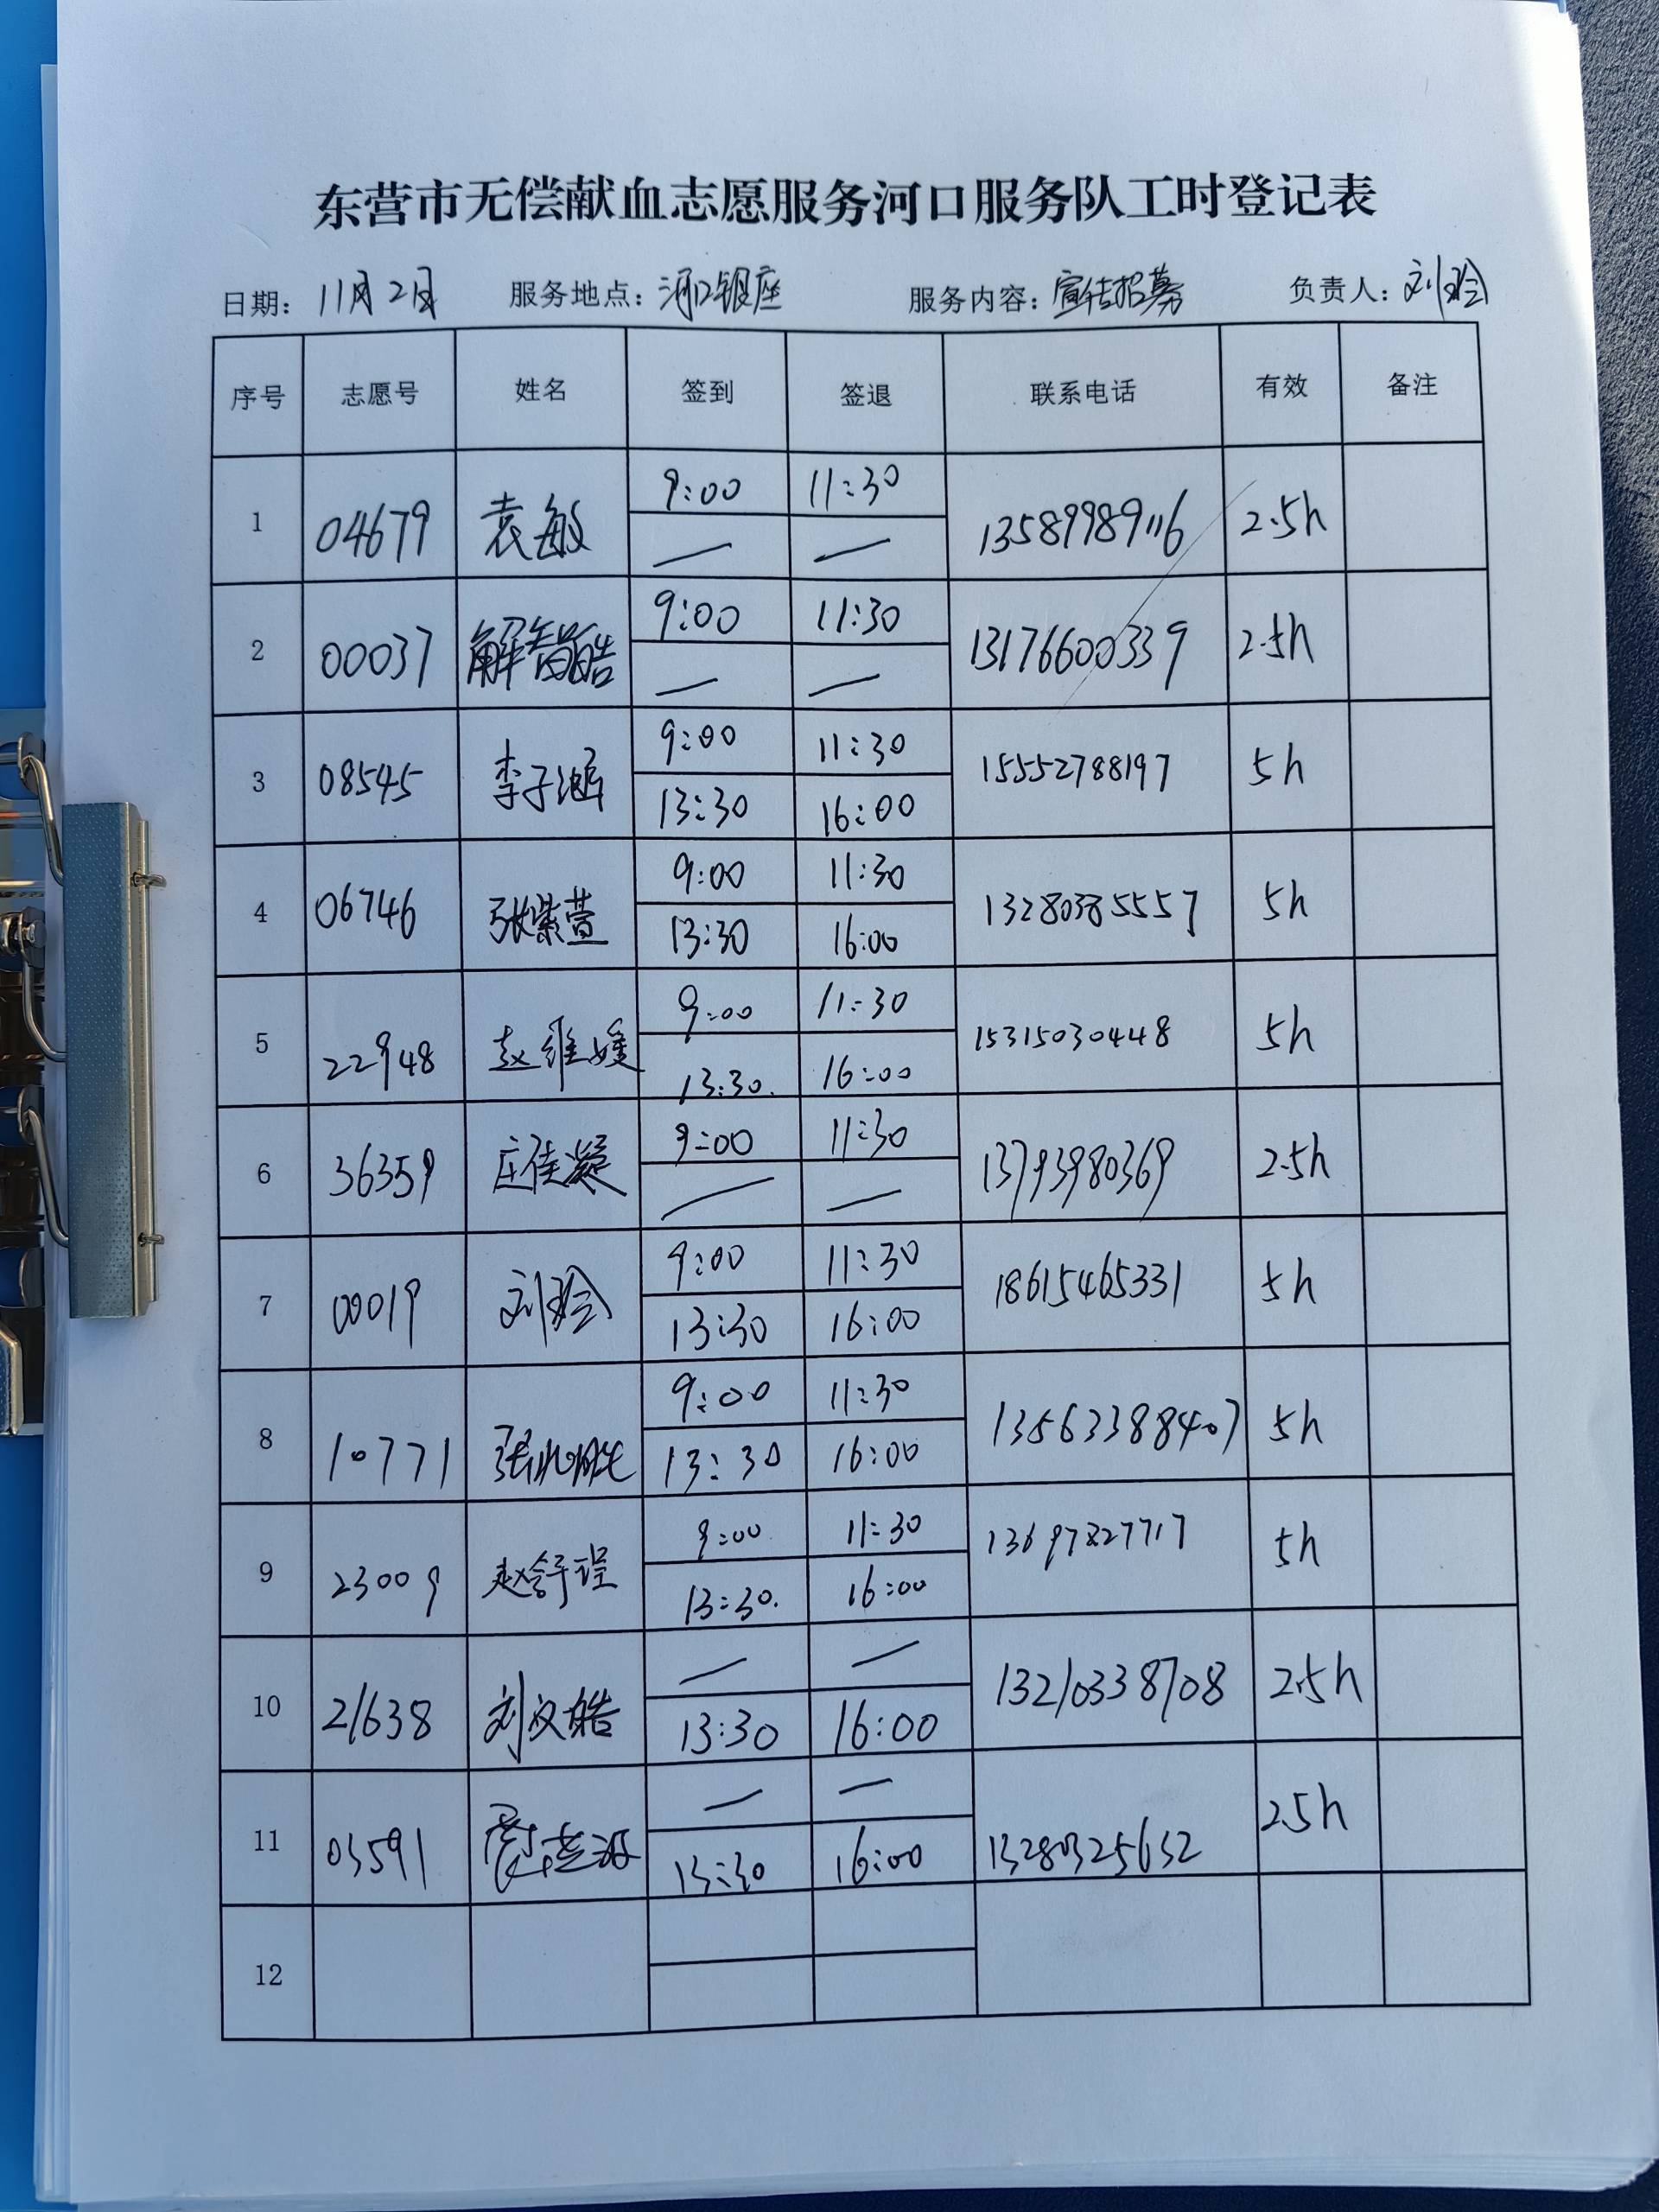 东营市无偿献血志愿服务河口服务队工时登记表
日期：11月2日 服务地点：河口银座 服务内容：宣传招募 负责人：刘玲
序号 志愿号 姓名 签到 签退 联系电话 有效 备注
1 04679 袁敏 9:00 11:30 13589989116 2.5h
— —
2 00037 解智皓 9:00 11:30 13176600339 2.5h
— —
3 08545 李子涵 9:00 11:30 15552788197 5h
13:30 16:00
4 06746 张紫萱 9:00 11:30 13280385557 5h
13:30 16:00
5 22948 赵维媛 9:00 11:30 15315030448 5h
13:30. 16:00
6 36359 庄佳凝 9:00 11:30 13793980369 2.5h
— —
7 00019 刘玲 9:00 11:30 18615465331 5h
13:30 16:00
8 10771 9:00 11:30 13563388407 5h
13:30 16:00
9 23009 赵舒理 9:00 11:30 13697827717 5h
13:30. 16:00
10 21638 刘文皓 — — 13210338708 2.5h
13:30 16:00
11 03591 — — 13280325632 2.5h
13:30 16:00
12